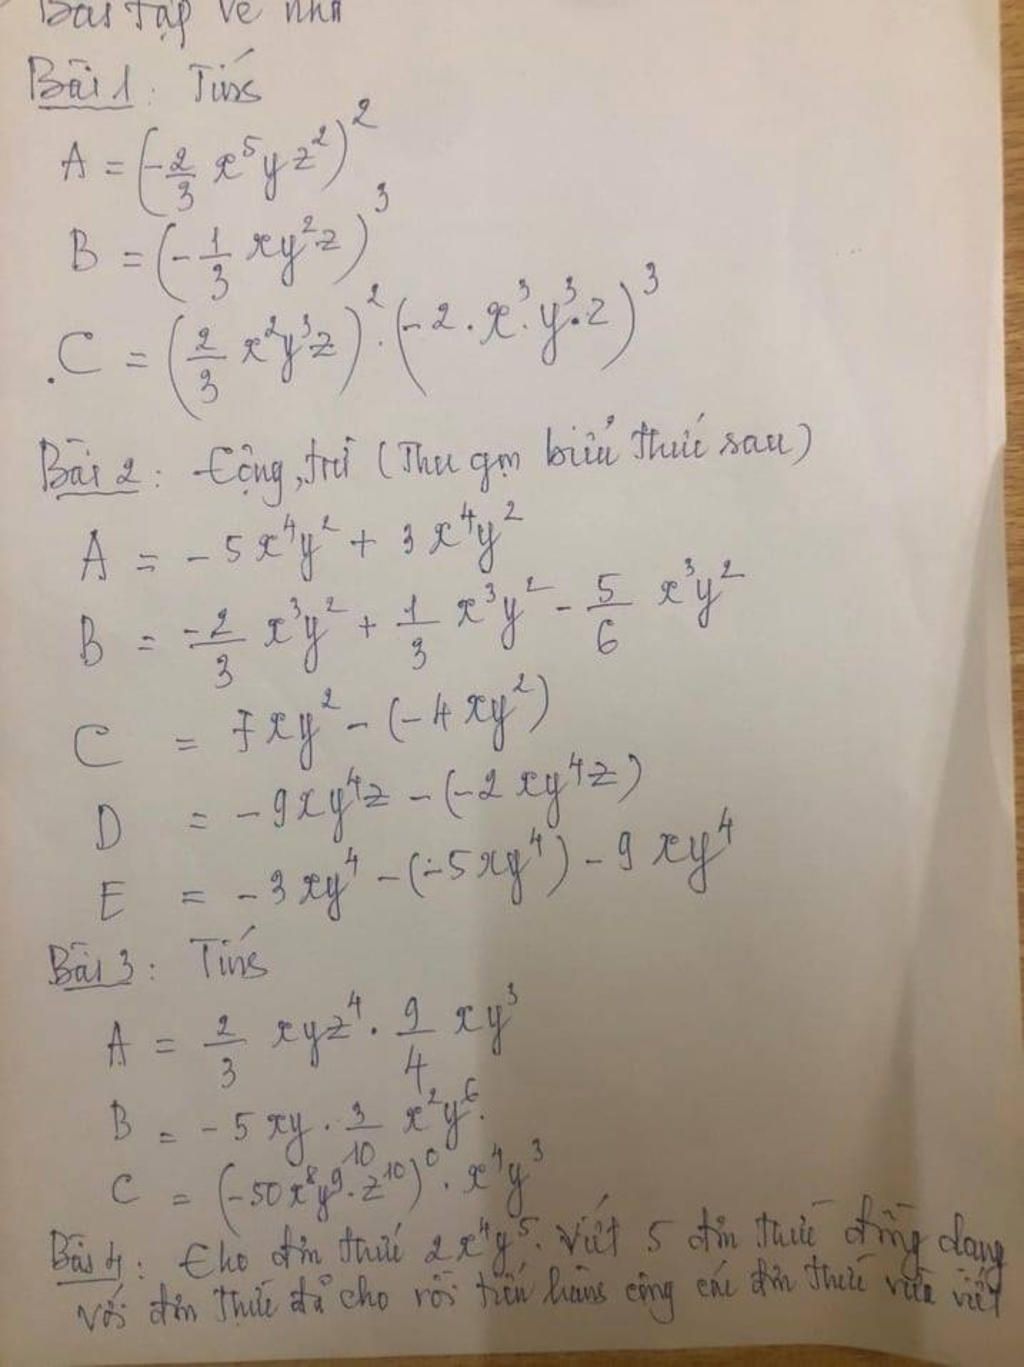 Bài tập về nhà
Bài 1: Tính
A = (-2/3 x⁵yz²)²
B = (-1/3 xy²z)³
C = (2/3 x²y³z)² . (-2 . x³ . y³ . z)³
Bài 2: Cộng, trừ (Thu gọn biểu thức sau)
A = -5x⁴y² + 3x⁴y²
B = -2/3 x³y² + 1/3 x³y² - 5/6 x³y²
C = 7xy² - (-4xy²)
D = -9xy⁴z - (-2xy⁴z)
E = -3xy⁴ - (-5xy⁴) - 9xy⁴
Bài 3: Tính
A = 2/3 xyz⁴ . 9/4 xy³
B = -5xy . 3/10 x²y⁶.
C = (-50x⁸y⁹ . z¹⁰)⁰ . x⁴y³
Bài 4: Cho đơn thức 2x⁴y⁵. Viết 5 đơn thức đồng dạng
với đơn thức đã cho rồi tiến hành cộng các đơn thức vừa viết